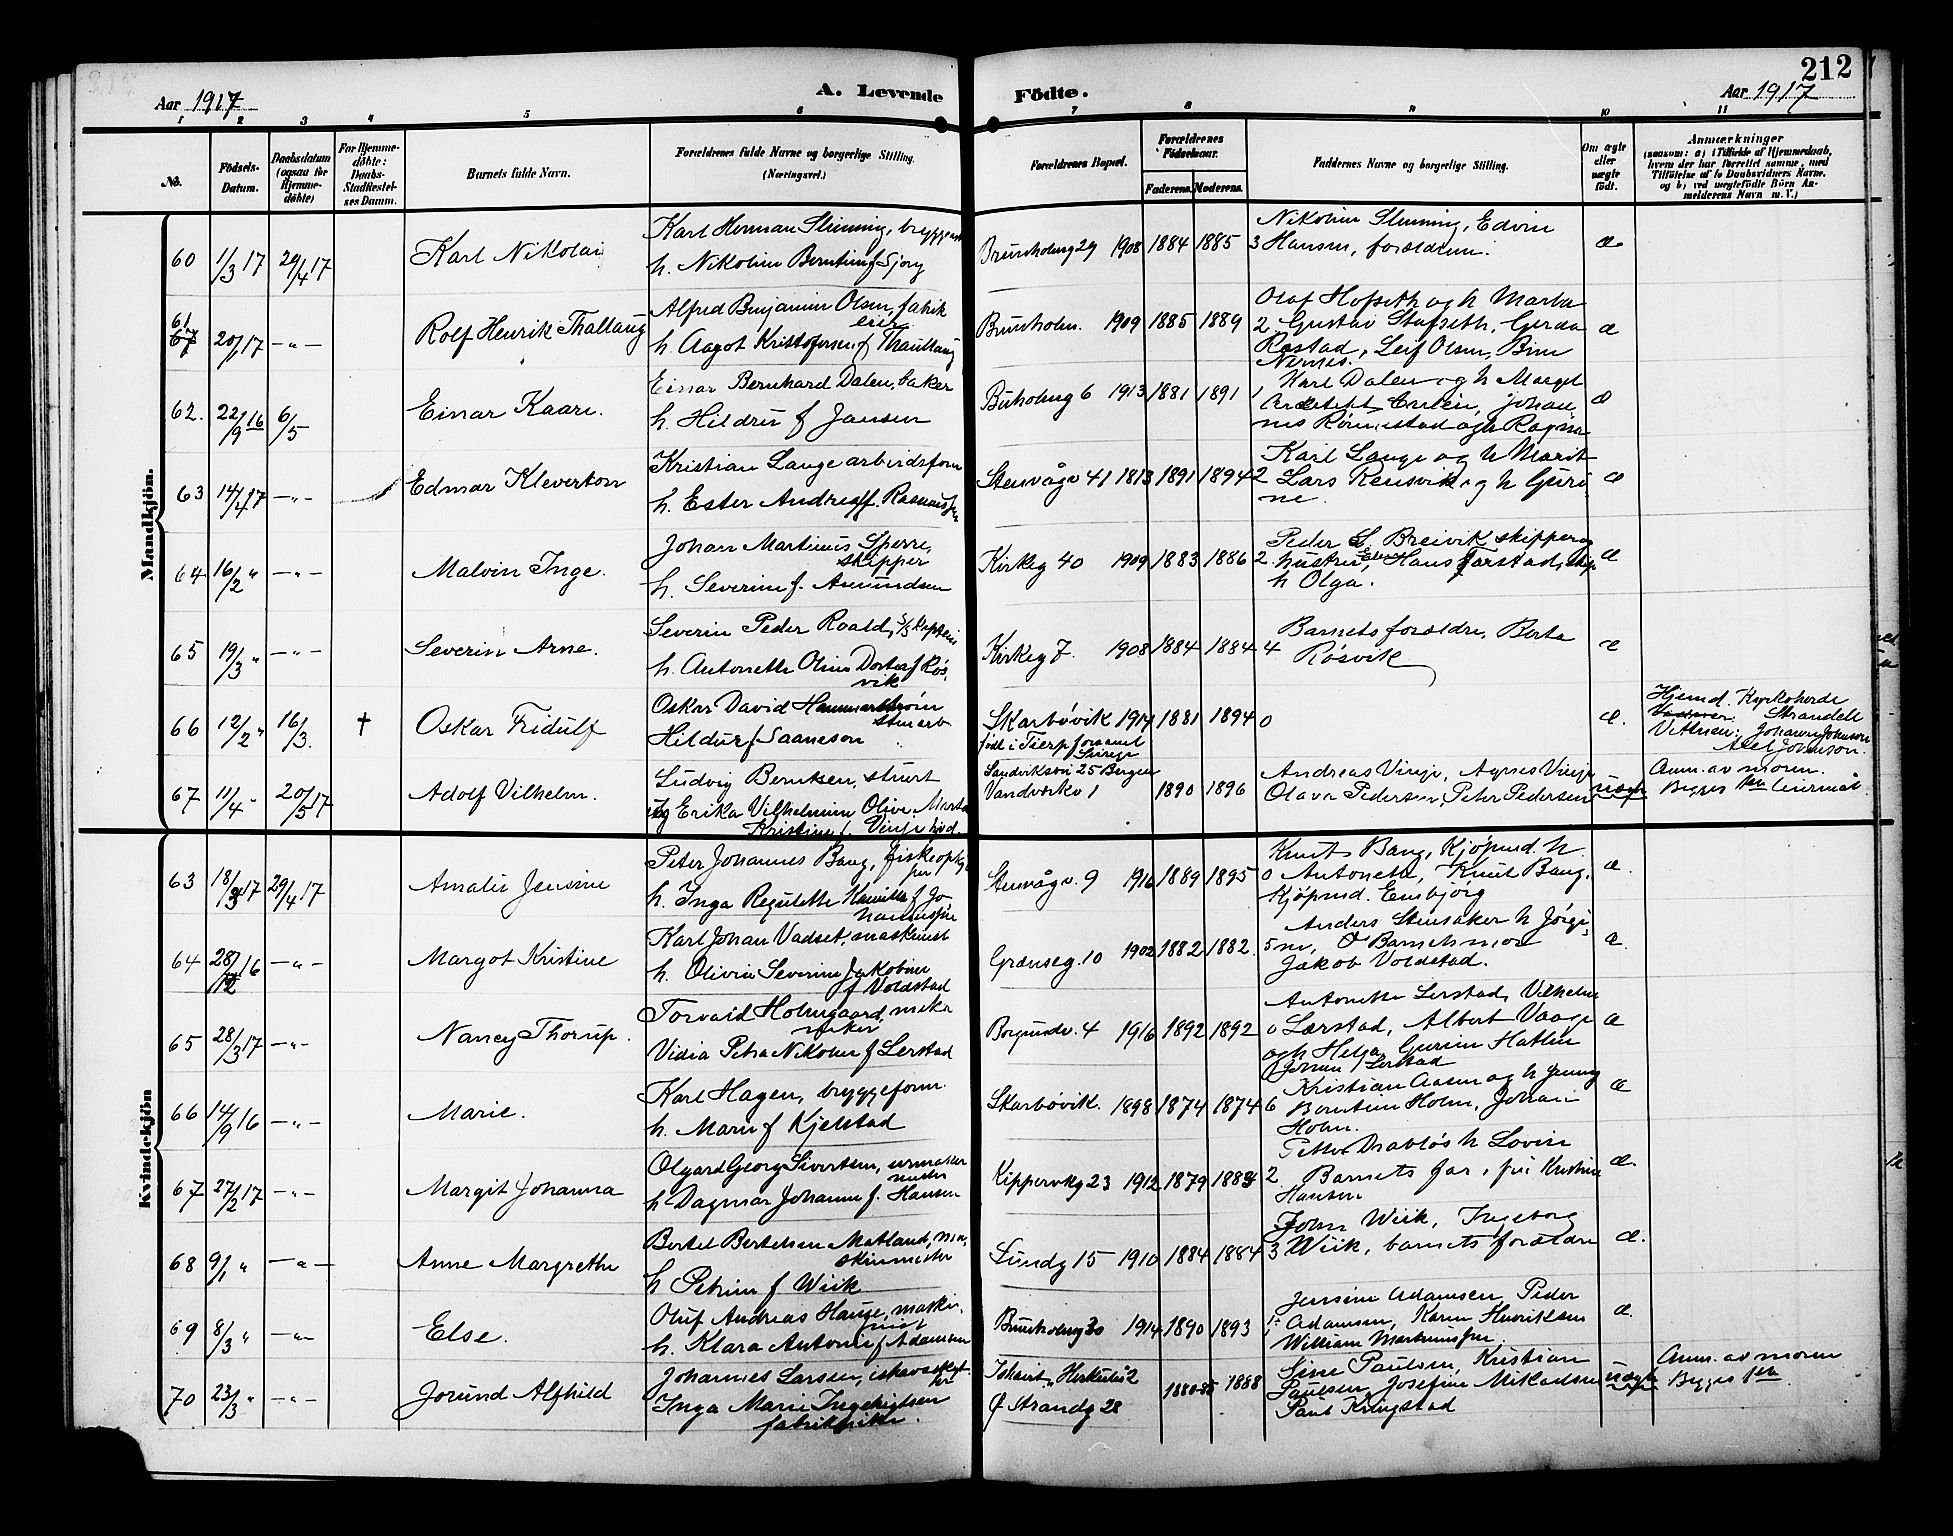 212
Aar 1917
A. Levende
Födte.
Aar 1917
1 2 3 4 5 6 7 8 9 10 11
No.
Födsels-
Datum.
Daabsdatum
(ogsaa for
Hjemme-
döbte)
For Hjemme-
döbte:
Daabs-
Stadfæstel-
ses Datum.
Barnets fulde Navn.
Forældrenes fulde Navne og borgerlige Stilling.
(Næringsvei.)
Forældrenes Bopæl.
Forældrenes
Födselsaar.
Faderens. Moderens.
Faddernes Navne og borgerlige Stilling.
Om ægte
eller
uægte
födt.
Anmærkninger
(saasom: a) i Tilfælde af Hjemmedaab,
hvem der har forrettet samme, med
Tilföielse af to Daabsvidners Navne,
og b) ved uægtefödte Börn An-
melderens Navn m. V.)
Mandkjön.
60 1/3 17 29/4 17 Karl Nikolai
Karl Herman
h. Nikoline Berntine f Sjong
Brunholmg 29 1908 1884 1885 3
Nikoline, Edvin
Hansen, forældrene.
æ
61 20/1 17 -"- Rolf Henrik Thallaug
Alfred Benjamin Olsen, fabrik
eier
h. Aagot Kristofersen f Thallaug
Brunholm. 1909 1885 1889 2
Olaf Hofseth og h Marta
Gustav Stafseth, Gerda
Rostad, Leif Olsen,
æ
62. 22/9 16 6/5 Einar Kaare.
Einar Bernhard Dalen, baker
h. Hildur f Jansen
Buholmg 6 1913 1881 1891 1
Karl Dalen og h Margit
Johan
nes Rønnestad og h Ragna
æ
63 14/4 17 -"- Edmar Kleverton
Kristian Lange arbeidsform
h. Ester Andrea f. Rasmussen
Stenvågv 41 1813 1891 1894 2
Karl Lange og h Marit
Lars Rensvik og h Guri
ne.
æ
64 16/2 " -"- Malvin Inge.
Johan Martinus Sperre,
skipper
h. Severine f. Amundsen
Kirkeg 40 1909 1883 1886 2
Peder L Breivik skipper og
hustru, Hans Farstad, skip
h Olga.
æ
65 19/3 " -"- Severin Arne.
Severin Peder Roald, S/S kaptein
h. Antonette Oline Dortea f Røs
vik
Kirkeg 7. 1908 1884 1884 4
Barnets forældre, Berta
Røsvik
æ
66 12/2 " 16/3. † Oskar Fridulf
Oskar David Hammarstrøm
stenarb
Hildur f Saaneson
Skarbøvik 1914 1881 1894 0
født i Tierp forsaml
Sverige
æ.
Hjemd. Kyrkoherde
Strandell
Vittnen: Johann Johnson
Axel Johnson.
67 11/4 " 20/5 17 Adolf Vilhelm.
Ludvig Berntsen, stuert
og Erika Vilhelmine Olive Marta
Kristine f Vinje
Sandviksvei 25 Bergen
Vandverkv 1 1890 1896
Andreas Vinje, Agnes Vinje
Olava Pedersen, Peter Pedersen
uægte
Anm. av moren.
Begges 1ste leiermål
Kvindekjön
63 18/3 17 29/4 17 Amalie Jensine
Peter Johannes Bang, fiskeopkjø
per
h. Inga Regulette Kamilla f Jo
hannessen
Stenvågv. 9 1916 1889 1895 0
Knut Bang, Kjøpmd. h
Antonette, Knut Bang,
Kjøpmd. Ensbjørg
æ.
64 28/12 16 -"- Margot Kristine
Karl Johan Vadset, maskinist
h. Olivia Severine Jakobine
f Voldstad
Grænseg 10 1902 1882 1882. 5
Anders Stensaker h Jørgi
ne, Barnets mor
Jakob Voldstad.
æ.
65 28/3 17 -"- Nancy Thorup.
Torvald Holmgaard, meka
niker
Vidia Petra Nikoline f Lerstad
Borgundv. 4 1916 1892 1892 0
Antonette Lerstad, Vilhelm
Lærstad, Albert Vaage
og h Helga Gurine Hatlen
Lerstad
æ
66 14/9 16 -"- Marie.
Karl Hagen, bryggeform.
h. Marie f Kjelstad
Skarbøvik. 1898 1874 1874 6
Kristian Aasen og h Jenny
Berntine Holm, Johan
Holm.
æ
67 27/2 17 -"- Margit Johanna
Olgard Georg Sivertsen, urmaker
h Dagmar Johanne f. Hansen
Kippervkg 23 1912 1879 1883 2
Petter Drabløs h Lovise
Barnets far, frk Kristine
Hansen
æ.
68 9/1 " -"- Anne Margrethe
Bertel Bertelsen Matland, ma
skinmester
h Petrine f Wiik
Lundg 15 1910 1884 1884 3
John Wiik, Ingeborg
Wiik, barnets forældre
æ.
69 8/3 " -"- Else.
Oluf Andreas Hauge, maski
nist
h. Klara Antonie f Adamsen
Brunholmg 20 1914 1890 1893 1
Jensine Adamsen, Peder
Adamsen, Karen Henriksen
William Martinussen.
æ.
70 23/3 " -"- Jorund Alfhild
Johannes Larsen, ishavsskip
per
Inga Marie Ingebrigtsen
fabrikpike.
Ishavsk. "Herkules 2
Ø Strandg 28 1880 1888
Sine Paulsen, Kristian
Paulsen, Josefine Mikalsen
Paul Kringstad
uægte
Anm. av moren
Begges 1ste